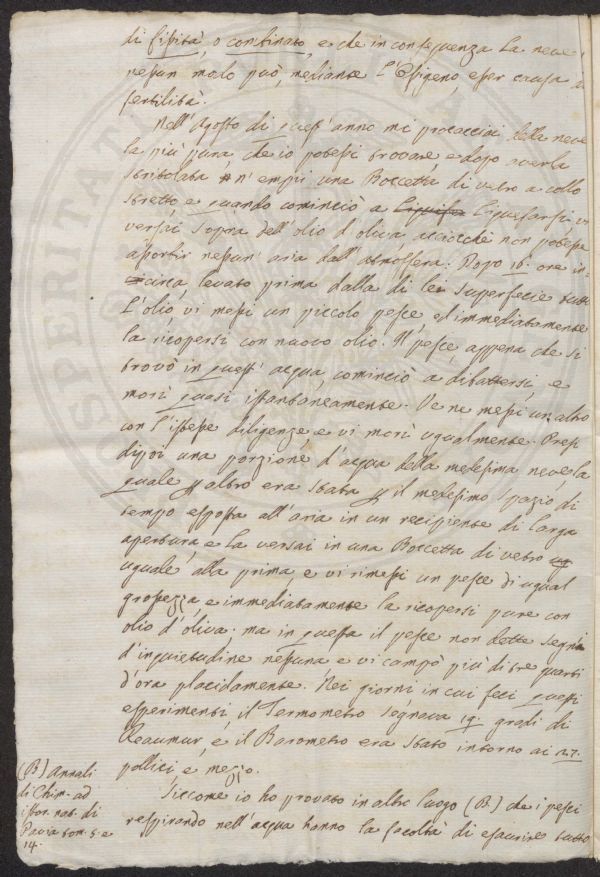 di fissità, o combinato, e che in conseguenza la neve
nessun modo può, mediante l'Ossigeno, esser causa di
fertilità.
Nell'Agosto di quest'anno mi procacciai della neve
la più pura, che io potessi trovare e dopo averla
stritolata n'empii una Boccetta di vetro a collo
stretto e quando cominciò a liquefarsi vi
versai sopra dell'olio d'oliva acciocchè non potesse
assorbir nessun'aria dall'atmosfera. Dopo 16 ore in-
circa, levato prima dalla di lei superficie tutto
l'olio, vi messi un piccolo pesce ed immediatamente
la ricopersi con nuovo olio. Il pesce, appena che si
trovò in quest'acqua, cominciò a dibattersi, e
morì quasi istantaneamente. Ve ne messi un altro
con l'istesse diligenze e vi morì ugualmente. Presi
dipoi una porzione d'acqua della medesima neve, la
quale per altro era stata per il medesimo spazio di
tempo esposta all'aria in un recipiente di larga
apertura, e la versai in una Boccetta di vetro
uguale alla prima, e vi rimessi un pesce d'ugual
grossezza, e immediatamente la ricopersi pure con
olio d'oliva: ma in questa il pesce non dette segni
d'inquietudine nessuna e vi campò più di tre quarti
d'ora placidamente. Nei giorni in cui feci questi
esperimenti il Termometro segnava 19 gradi di
Reaumur, e il Barometro era stato intorno ai 27
pollici e mezzo.
Siccome io ho provato in altro luogo (B) che i pesci
respirando nell'acqua hanno la facoltà di esaurire tutto
(B) Annali
di Chim. ad
istor. nat. di
Pavia tom. 5. e
14.